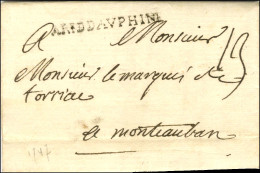 AR.DDAVPHINE
A Monsieur 13
Monsieur le marquis de
torriac
a monteauban
1747